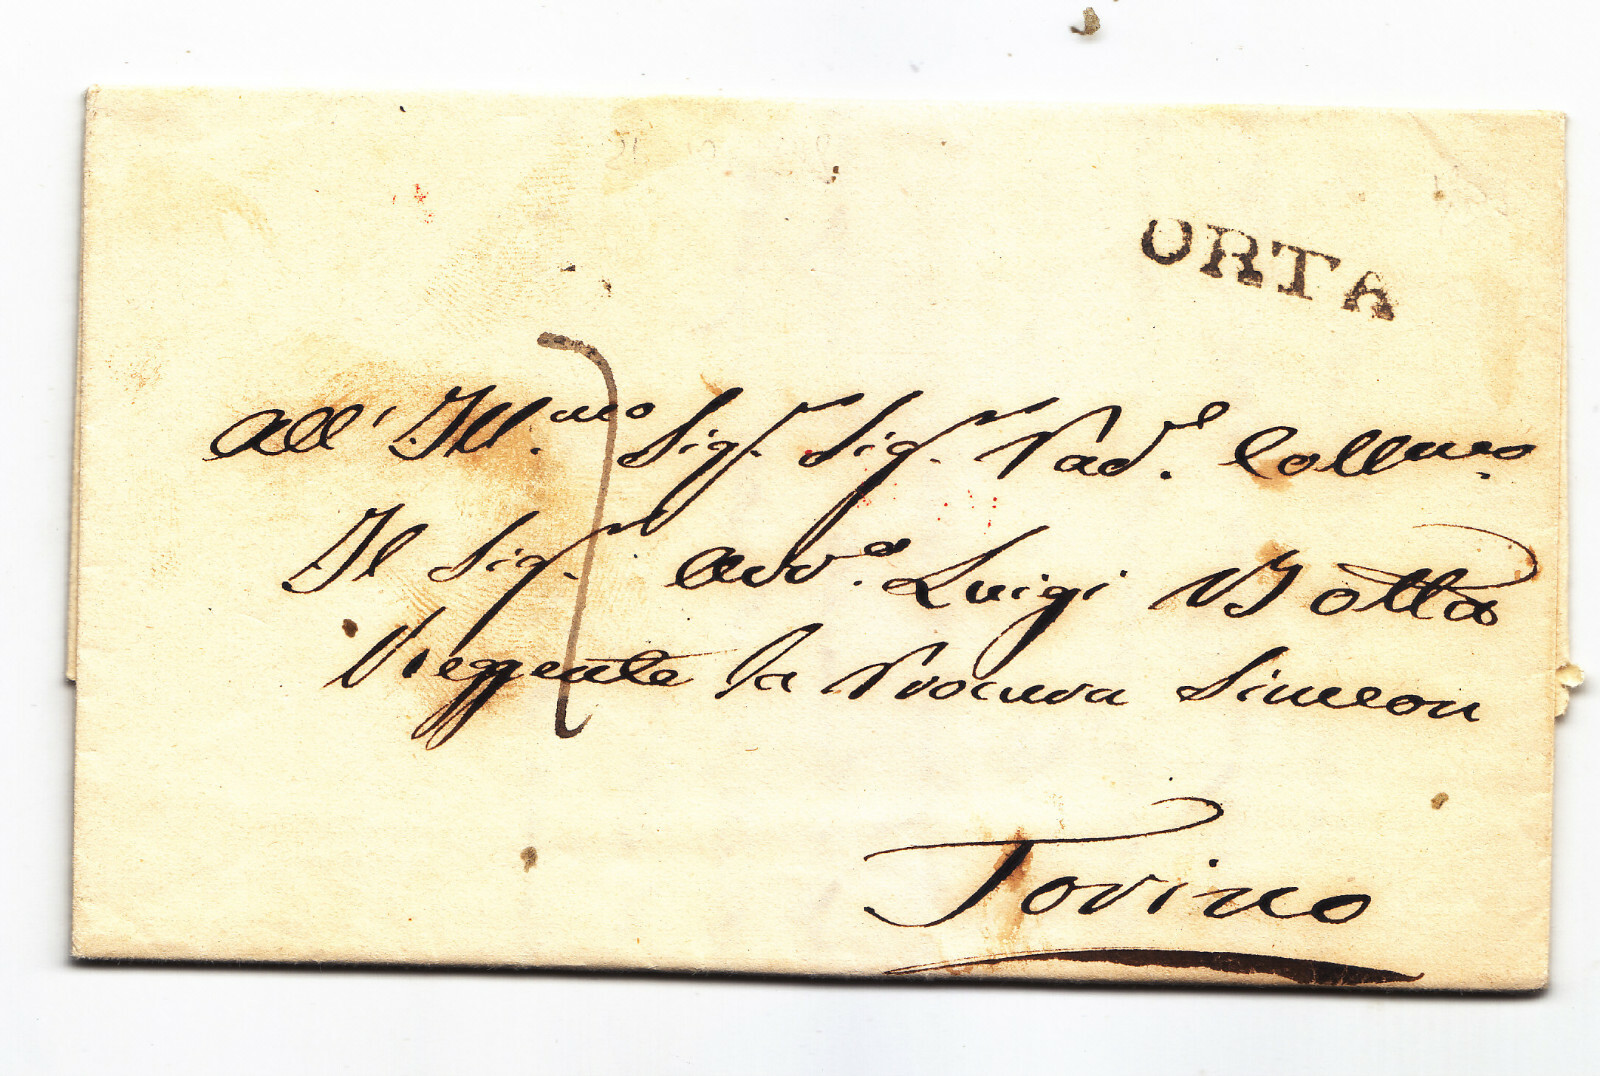 ORTA
All' Ill.mo Sig.r Sig.r Pad.e Coll.mo
Il Sig.r Avv.o Luigi Botta
Reggente la Procura Simeon
Torino